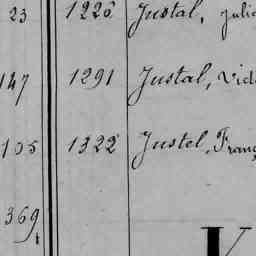 23 1226 Justal, Julie
147 1291 Justal, Vid
105 1322 Justel, Franç
369
K